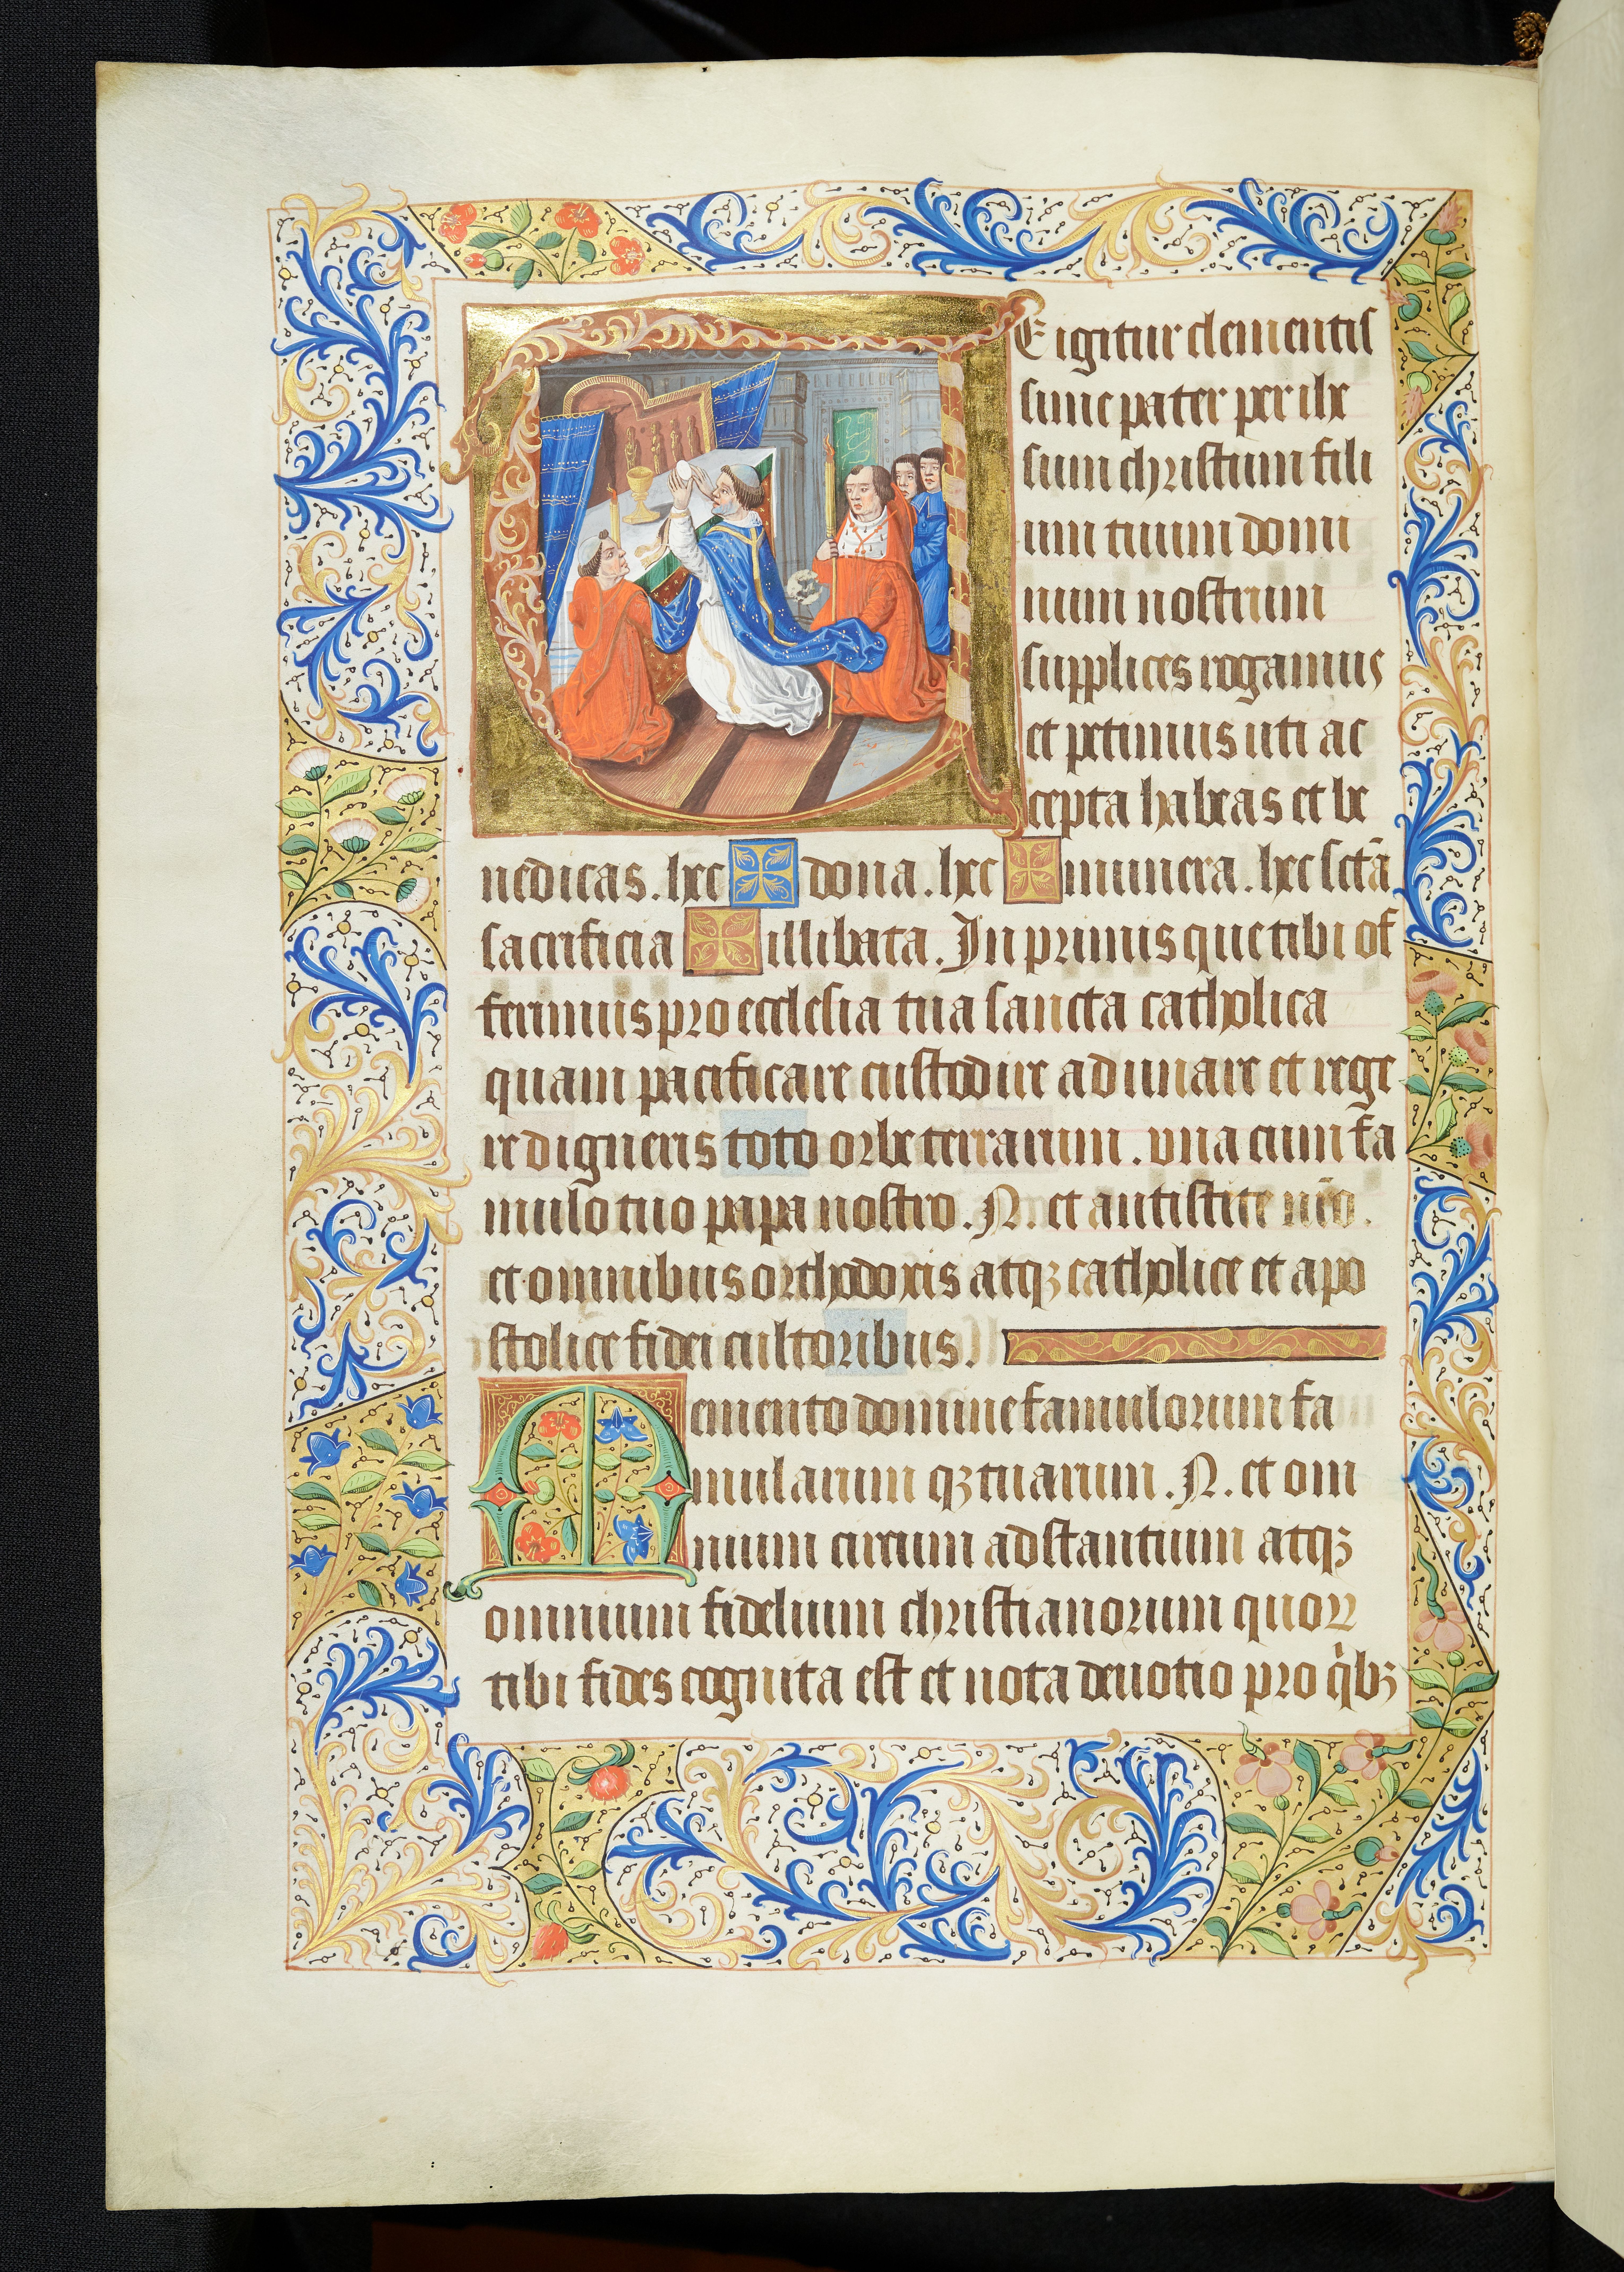 TE igitur clementis
sime pater per ihe
sum christum fili
um tuum domi
num nostrum
supplices rogamus
et petimus uti ac
cepta habeas et be
nedicas. hec ✠ dona. hec ✠ munera. hec sctā
sacrificia ✠ illibata. In primis que tibi of
ferimus pro ecclesia tua sancta catholica
quam pacificare custodire adunare et rege
re digneris toto orbe terrarum. vna cum fa
mulo tuo papa nostro. N. et antistite nr̄o.
et omnibus orthodoxis atqꝫ catholice et apo
stolice fidei cultoribus.
Memento domine famulorum fa
mularum qꝫ tuarum. N. et om
nium circum adstantium atqꝫ
omnium fidelium christianorum quoꝝ
tibi fides cognita est et nota deuotio pro qͥbꝫ